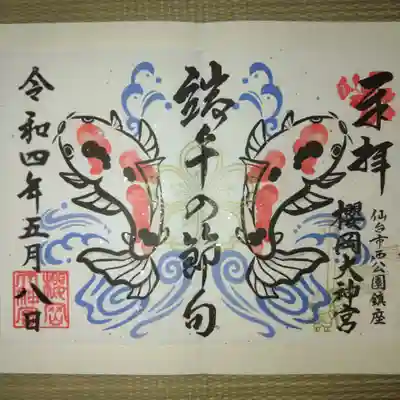 奉拝
仙台市西公園鎮座
櫻岡大神宮
端午の節句
令和四年五月八日